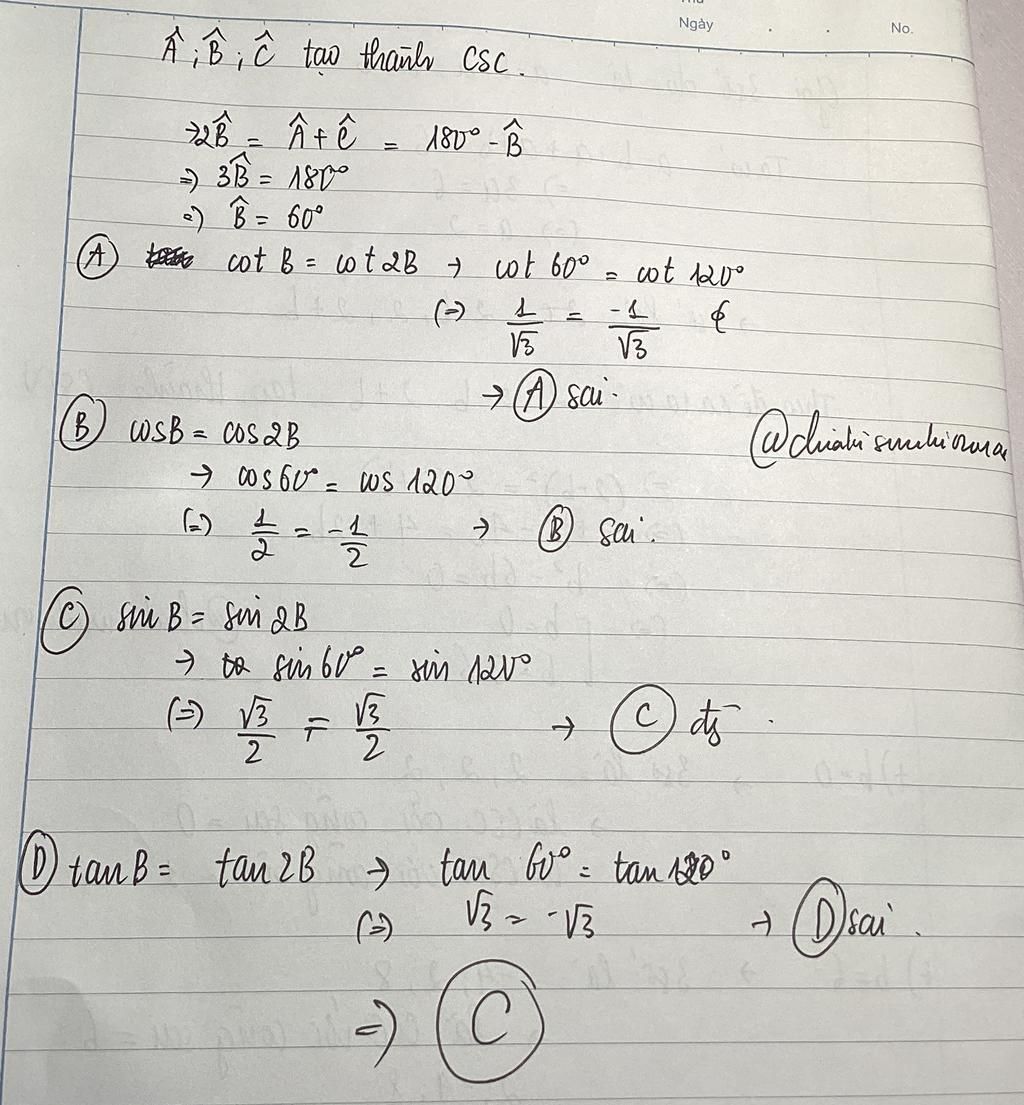 Ngày . . No.
Â; B̂; Ĉ tạo thành CSC.
→ 2B̂ = Â + Ĉ = 180° - B̂
=> 3B̂ = 180°
=> B̂ = 60°
Ⓐ cot B = cot 2B → cot 60° = cot 120°
(=) 1/√3 = -1/√3
→ Ⓐ sai.
Ⓑ cosB = cos 2B
→ cos 60° = cos 120°
(=) 1/2 = -1/2 → Ⓑ sai.
Ⓒ sin B = sin 2B
→ sin 60° = sin 120°
(=) √3/2 = √3/2 → Ⓒ đg
Ⓓ tan B = tan 2B → tan 60° = tan 120°
(=) √3 = -√3 → Ⓓ sai.
=> Ⓒ